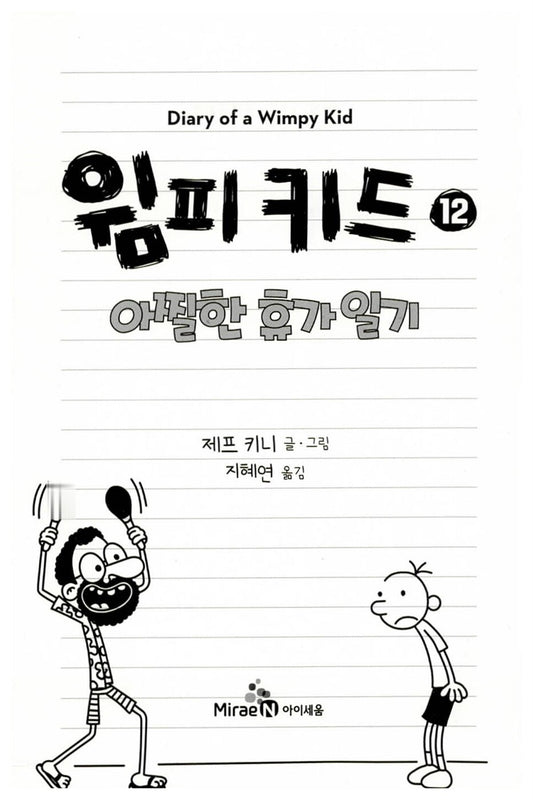 Diary of a Wimpy Kid
윔피 키드 12
아찔한 휴가 일기
제프 키니 글·그림
지혜연 옮김
Mirae N 아이세움